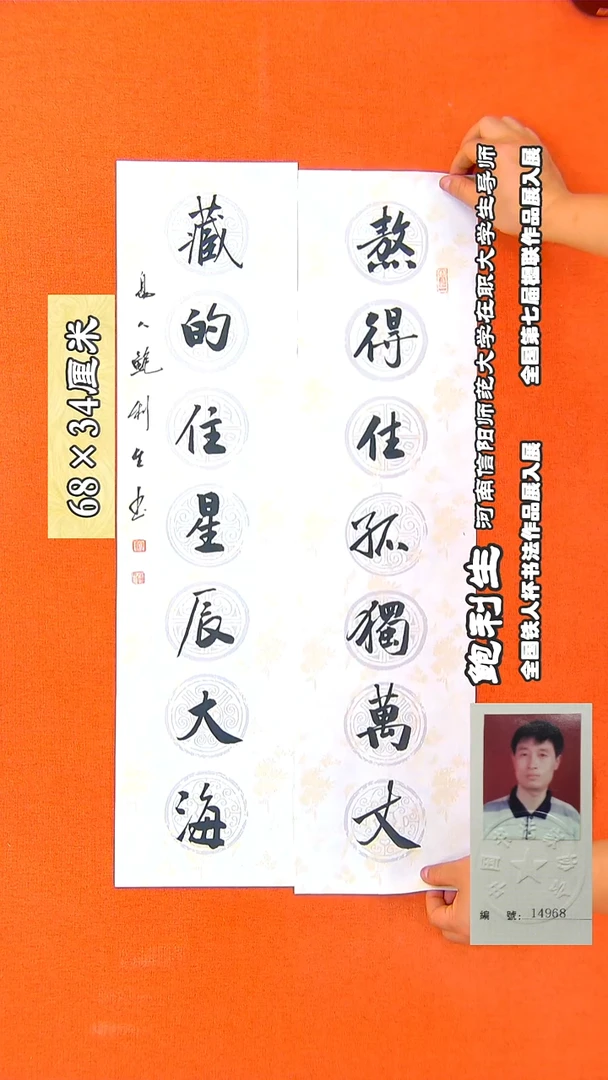 熬得住孤獨萬丈
藏的住星辰大海
息人鲍利生书
68×34厘米
鲍利生 河南信阳师范大学在职大学生导师
全国铁人杯书法作品展入展 全国第七届楹联作品展入展
編 號: 14968